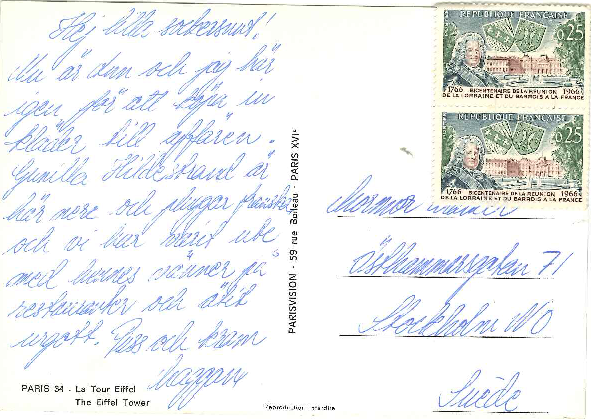 Hej lilla sockersnut!
Nu är dan och jag här
igen för att köpa in
kläder till affären.
Gunilla Hildestrand är
här nere och pluggar franska
och vi har varit ute
med hennes vänner på
restauranter och ätit
urgott. Puss och kram
Maggan
PARIS 34 - La Tour Eiffel
The Eiffel Tower
PARISVISION - 59 rue Boileau - PARIS XVIe
Reproduction interdite
REPUBLIQUE FRANÇAISE
0,25
1766 BICENTENAIRE DE LA REUNION 1966
DE LA LORRAINE ET DU BARROIS A LA FRANCE
REPUBLIQUE FRANÇAISE
0,25
1766 BICENTENAIRE DE LA REUNION 1966
DE LA LORRAINE ET DU BARROIS A LA FRANCE
Östhammarsgatan 71
Stockholm NO
Suède